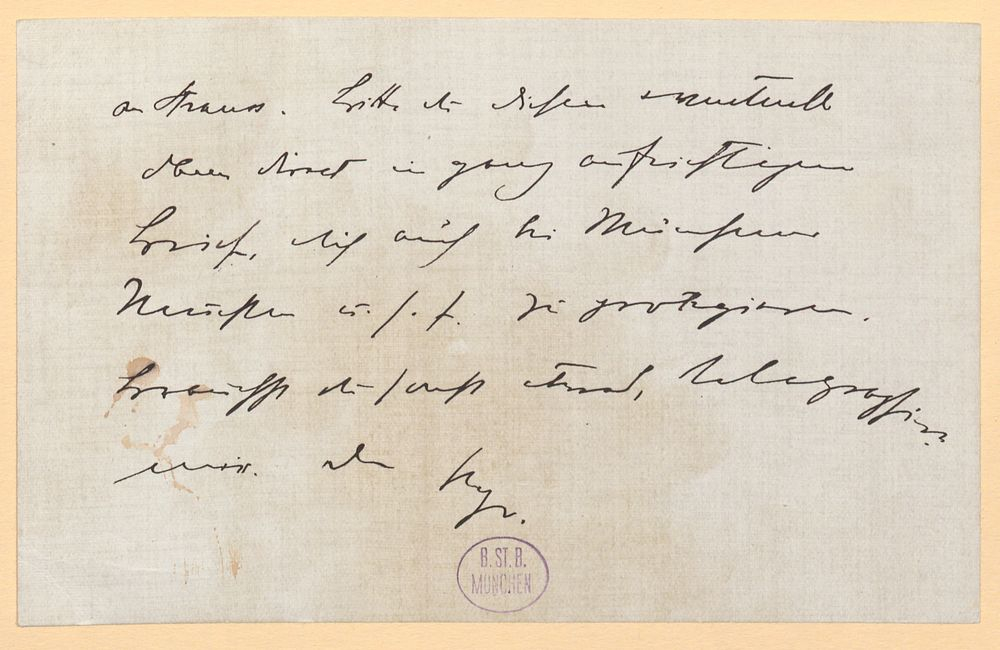 an Strauss. Bitte du diesen eventuell
eben direct in ganz aufrichtigem
Brief, dich auch bei Münchner
Neuesten u. s. f. zu protegieren.
Brauchst du sonst etwas, telegraphire
mir. Dein
B. ST. B.
MÜNCHEN